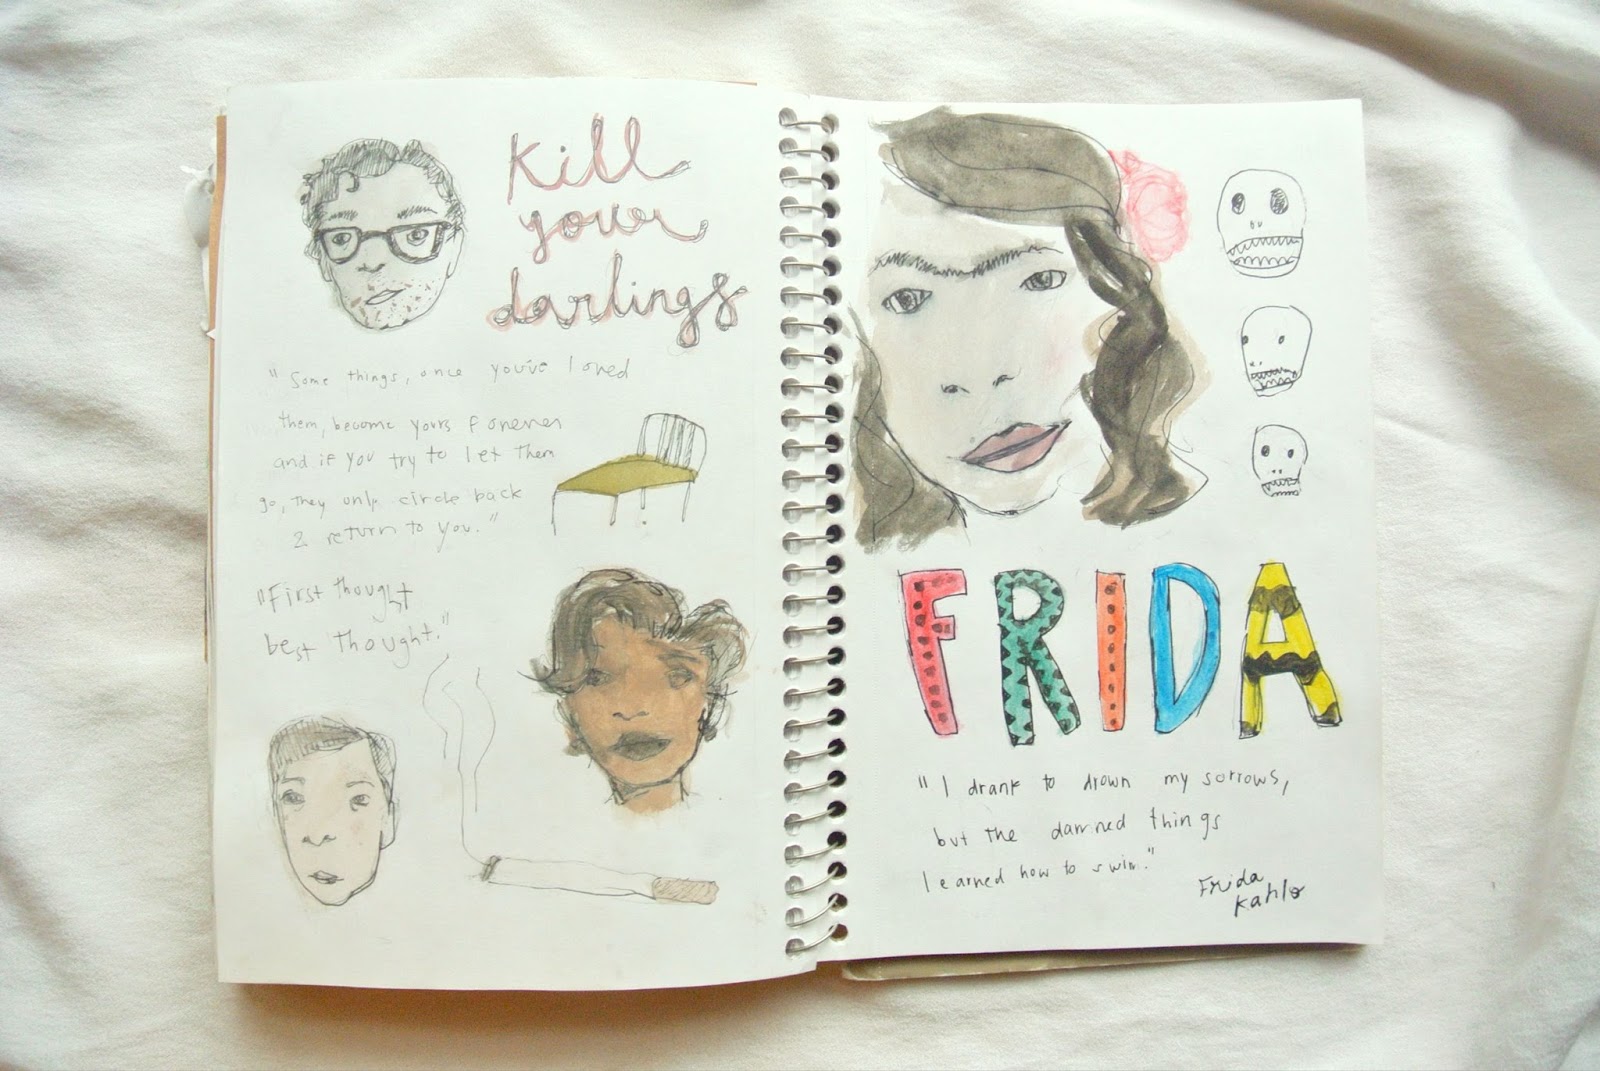 Kill
your
darlings
"Some things, once you've loved
them, become yours forever
and if you try to let them
go, they only circle back
2 return to you."
"First thought
best thought."
FRIDA
"I drank to drown my sorrows,
but the damned things
learned how to swim."
Frida
Kahlo